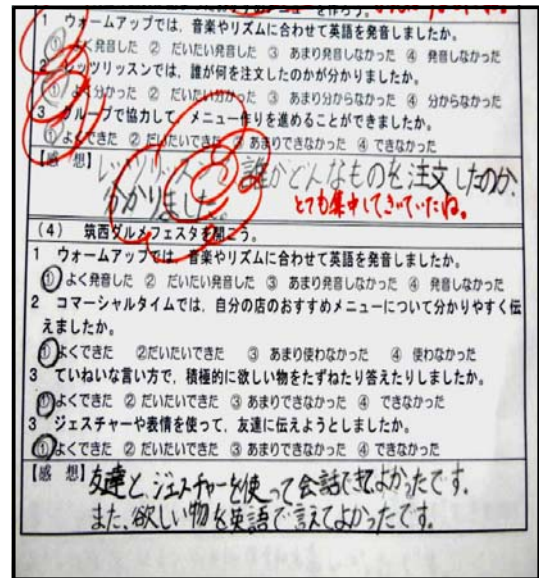 メニューを作ろう。
1 ウォームアップでは,音楽やリズムに合わせて英語を発音しましたか。
① よく発音した ② だいたい発音した ③ あまり発音しなかった ④ 発音しなかった
2 レッツリッスンでは,誰が何を注文したのかが分かりましたか。
① よく分かった ② だいたい分かった ③ あまり分からなかった ④ 分からなかった
3 グループで協力して,メニュー作りを進めることができましたか。
① よくできた ② だいたいできた ③ あまりできなかった ④ できなかった
【感 想】レッツリッスンが誰がどんなものを注文したのか、
分かりました。
とても集中してきいていたね。
(4) 筑西グルメフェスタを開こう。
1 ウォームアップでは,音楽やリズムに合わせて英語を発音しましたか。
① よく発音した ② だいたい発音した ③ あまり発音しなかった ④ 発音しなかった
2 コマーシャルタイムでは,自分の店のおすすめメニューについて分かりやすく伝
えましたか。
① よくできた ②だいたいできた ③ あまり使わなかった ④ 使わなかった
3 ていねいな言い方で,積極的に欲しい物をたずねたり答えたりしましたか。
① よくできた ② だいたいできた ③ あまりできなかった ④ できなかった
3 ジェスチャーや表情を使って,友達に伝えようとしましたか。
① よくできた ② だいたいできた ③ あまりできなかった ④ できなかった
【感 想】友達と、ジェスチャーを使って会話できてよかったです。
また、欲しい物を英語で言えてよかったです。